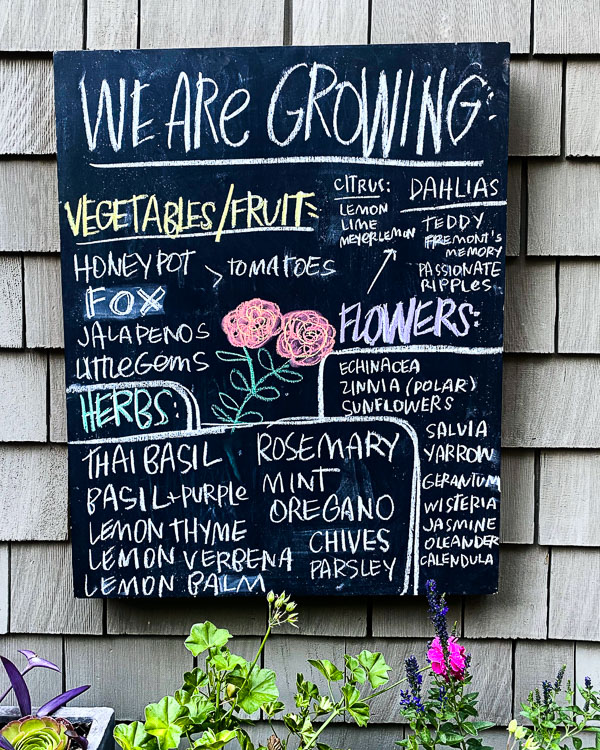 WE ARE GROWING:
VEGETABLES/FRUIT:
HONEYPOT > TOMATOES
FOX
JALAPENOS
LITTLEGEMS
CITRUS:
LEMON
LIME
MEYERLEMON
DAHLIAS
TEDDY
FREMONT'S
MEMORY
PASSIONATE
RIPPLES
FLOWERS:
ECHINACEA
ZINNIA (POLAR)
SUNFLOWERS
SALVIA
YARROW
GERANIUM
WISTERIA
JASMINE
OLEANDER
CALENDULA
HERBS:
THAI BASIL
BASIL + PURPLE
LEMON THYME
LEMON VERBENA
LEMON BALM
ROSEMARY
MINT
OREGANO
CHIVES
PARSLEY